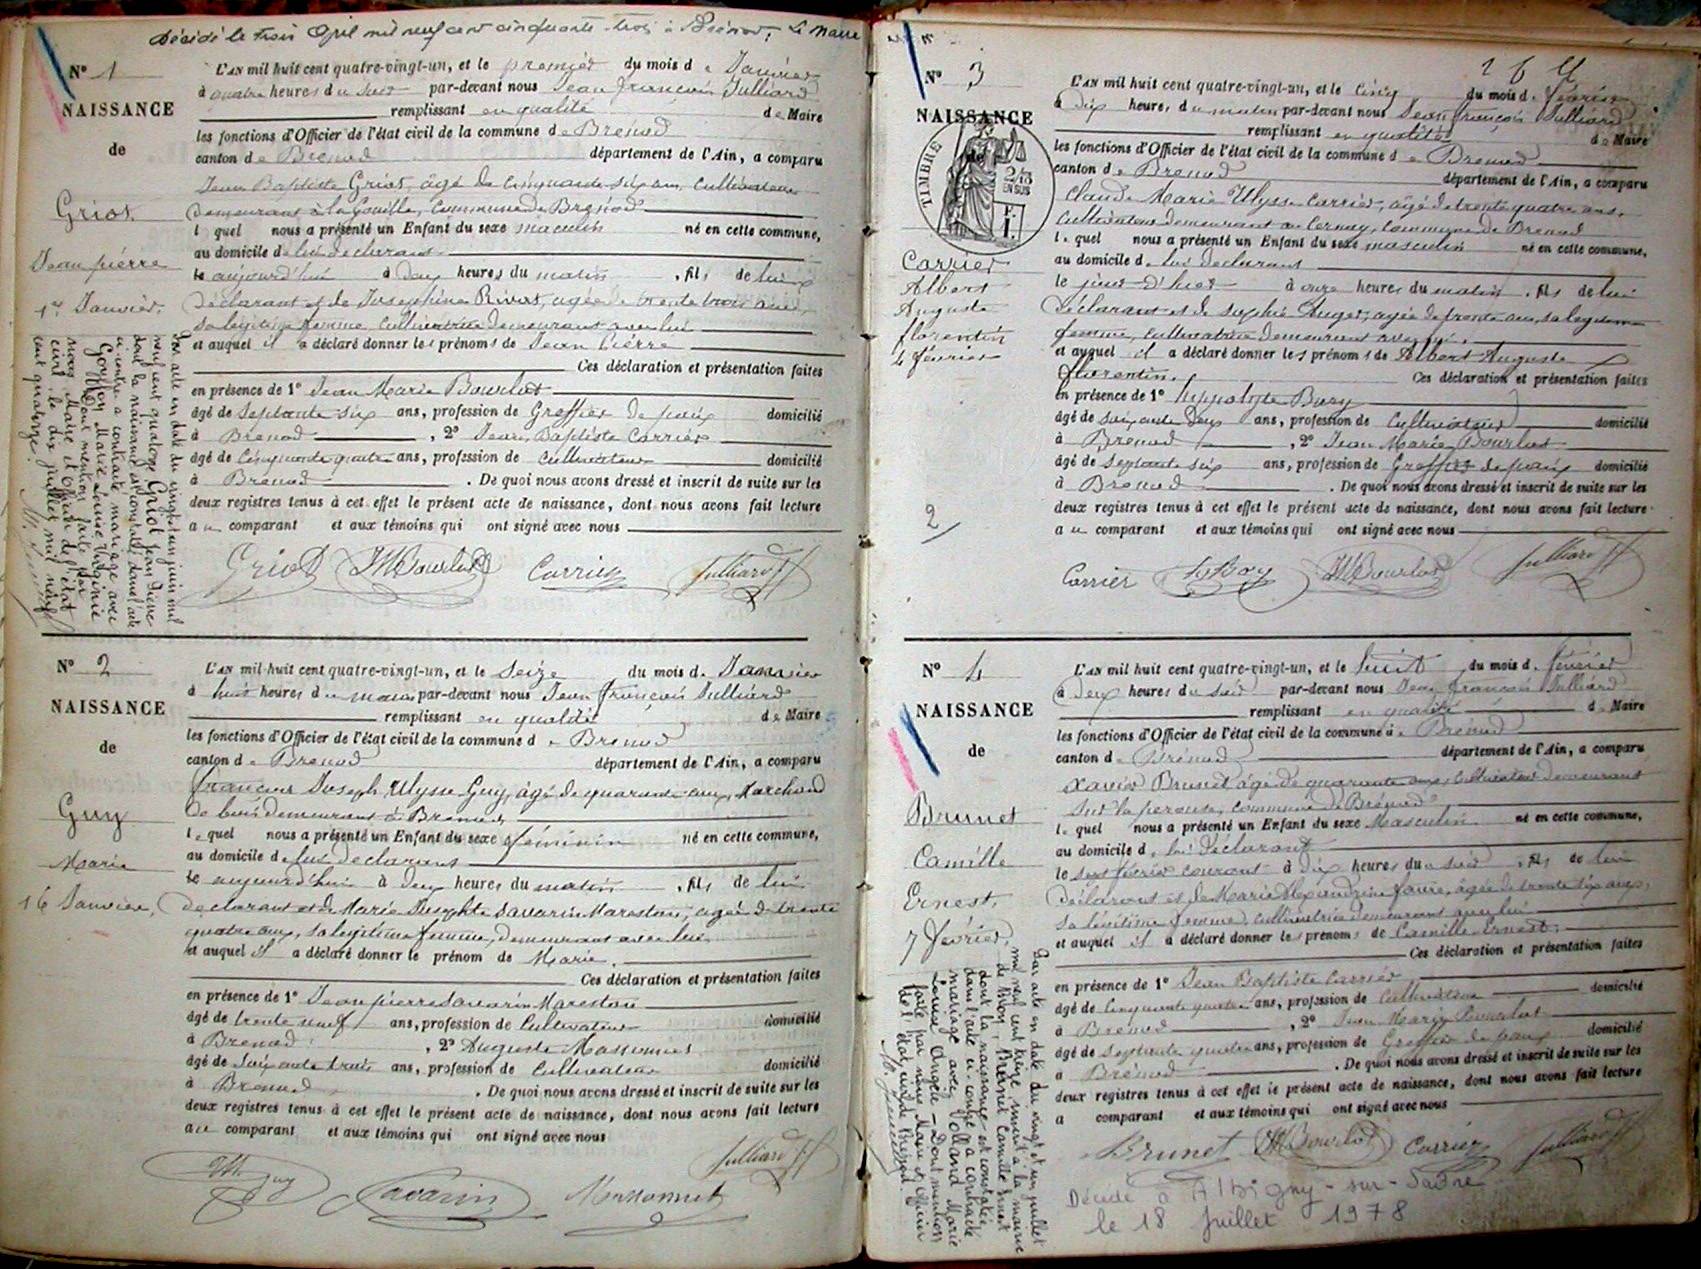 Décédé le trois Avril mil neuf cent cinquante trois à Brénod, Le Maire
N° 1
NAISSANCE
de
Griot
Jean pierre
1er Janvier.
L'AN mil huit cent quatre-vingt-un, et le premier du mois de Janvier
à quatre heures du soir par-devant nous Jean François Julliard
remplissant en qualité de Maire
les fonctions d'Officier de l'état civil de la commune de Brenod
canton de Brenod département de l'Ain, a comparu
Jean Baptiste Griot, âgé de cinquante six ans, cultivateur
demeurant à la Gouille, commune de Brenod
lequel nous a présenté un Enfant du sexe masculin né en cette commune,
au domicile de lui déclarant
le aujourd'hui à deux heures du matin, fils de lui
déclarant et de Josephine Rivat, agée de trente trois ans,
sa legitime femme cultivatrice demeurant avec lui
et auquel il a déclaré donner les prénoms de Jean Pierre
Ces déclaration et présentation faites
en présence de 1° Jean Marie Bourlot
âgé de septante six ans, profession de Greffier de paix domicilié
à Brenod, 2° Jean Baptiste Carrier
âgé de Cinquante quatre ans, profession de cultivateur domicilié
à Brenod. De quoi nous avons dressé et inscrit de suite sur les
deux registres tenus à cet effet le présent acte de naissance, dont nous avons fait lecture
au comparant et aux témoins qui ont signé avec nous
Griot JMBourlot Carrier Julliard
Par acte en date du vingt et un juin mil
neuf cent quatorze Griot Jean Pierre
dont la naissance est constatée dans l'acte
ci contre a contracté mariage avec
Goyffon Marie Louise Virginie
Dont mention faite par
nous Maire et officier de l'état
civil le dix juillet mil neuf
cent quatorze.
N° 2
NAISSANCE
de
Guy
Marie
16 Janvier,
L'AN mil huit cent quatre-vingt-un, et le Seize du mois de Janvier
à huit heures du matin par-devant nous Jean François Julliard
remplissant en qualité de Maire
les fonctions d'Officier de l'état civil de la commune de Brenod
canton de Brenod département de l'Ain, a comparu
François Joseph Ulysse Guy, âgé de quarante ans, Marchand
de bois demeurant à Brenod
lequel nous a présenté un Enfant du sexe féminin né en cette commune,
au domicile de lui déclarant
le aujourd'hui à deux heures du matin, fils de lui
declarant et de Marie Josephte Savarin Marestan, agée de trente
quatre ans, sa legitime femme, demeurant avec lui
et auquel il a déclaré donner le prénom de Marie.
Ces déclaration et présentation faites
en présence de 1° Jean pierre Savarin Marestan
âgé de trente neuf ans, profession de Cultivateur domicilié
à Brenod, 2° Auguste Massonnet
âgé de Soixante trois ans, profession de Cultivateur domicilié
à Brenod. De quoi nous avons dressé et inscrit de suite sur les
deux registres tenus à cet effet le présent acte de naissance, dont nous avons fait lecture
au comparant et aux témoins qui ont signé avec nous
Julliard
Guy Savarin Massonnet
N° 3
NAISSANCE
de
TIMBRE
2/10 EN SUS
F.
1.
Carrier
Albert
Auguste
florentin
4 février
2
L'AN mil huit cent quatre-vingt-un, et le Cinq du mois de février
à dix heures du matin par-devant nous Jean François Julliard
remplissant en qualité de Maire
les fonctions d'Officier de l'état civil de la commune de Brenod
canton de Brenod département de l'Ain, a comparu
Claude Marie Ulysse Carrier, âgé de trente quatre ans,
cultivateur demeurant au Cernay, commune de Brenod
lequel nous a présenté un Enfant du sexe masculin né en cette commune,
au domicile de lui declarant
le jour d'hier à onze heures du matin, fils de lui
déclarant et de Sophie Auger, agée de trente ans, sa legitime
femme, cultivatrice demeurant avec lui.
et auquel il a déclaré donner les prénoms de Albert Auguste
florentin. Ces déclaration et présentation faites
en présence de 1° hyppolyte Bary
âgé de soixante deux ans, profession de Cultivateur domicilié
à Brenod, 2° Jean Marie Bourlot
âgé de septante six ans, profession de Greffier de paix domicilié
à Brenod. De quoi nous avons dressé et inscrit de suite sur les
deux registres tenus à cet effet le présent acte de naissance, dont nous avons fait lecture
au comparant et aux témoins qui ont signé avec nous
Carrier JMBourlot Julliard
N° 4
NAISSANCE
de
Brunet
Camille
Ernest,
7 février.
L'AN mil huit cent quatre-vingt-un, et le huit du mois de février
à deux heures du soir par-devant nous Jean François Julliard
remplissant en qualité de Maire
les fonctions d'Officier de l'état civil de la commune de Brénod
canton de Brénod département de l'Ain, a comparu
Xavier Brunet âgé de quarante ans, cultivateur demeurant
sur la perouse, commune de Brénod
lequel nous a présenté un Enfant du sexe Masculin né en cette commune,
au domicile de lui déclarant
le sept février courant à dix heures du soir, fils de lui
déclarant et de Marie Alexandrine Favre, âgée de trente six ans,
sa légitime femme, cultivatrice demeurant avec lui
et auquel il a déclaré donner les prénoms de Camille Ernest.
Ces déclaration et présentation faites
en présence de 1° Jean Baptiste Carrier
âgé de cinquante quatre ans, profession de Cultivateur domicilié
à Brenod, 2° Jean Marie Bourlot
âgé de septante quatre ans, profession de Greffier de paix domicilié
à Brénod. De quoi nous avons dressé et inscrit de suite sur les
deux registres tenus à cet effet le présent acte de naissance, dont nous avons fait lecture
a comparant et aux témoins qui ont signé avec nous
Brunet JMBourlot Carrier Julliard
Décédé à Albigny-sur-Saône
le 18 Juillet 1978
Par acte en date du vingt et un juillet
mil neuf cent treize inscrit à la mairie
de Brunet Camille Ernest
dont la naissance est constatée
dans l'acte ci contre a contracté
mariage avec Volland Marie
Louise Angèle - Dont mention
faite par nous Maire et officier
de l'état civil de Brénod